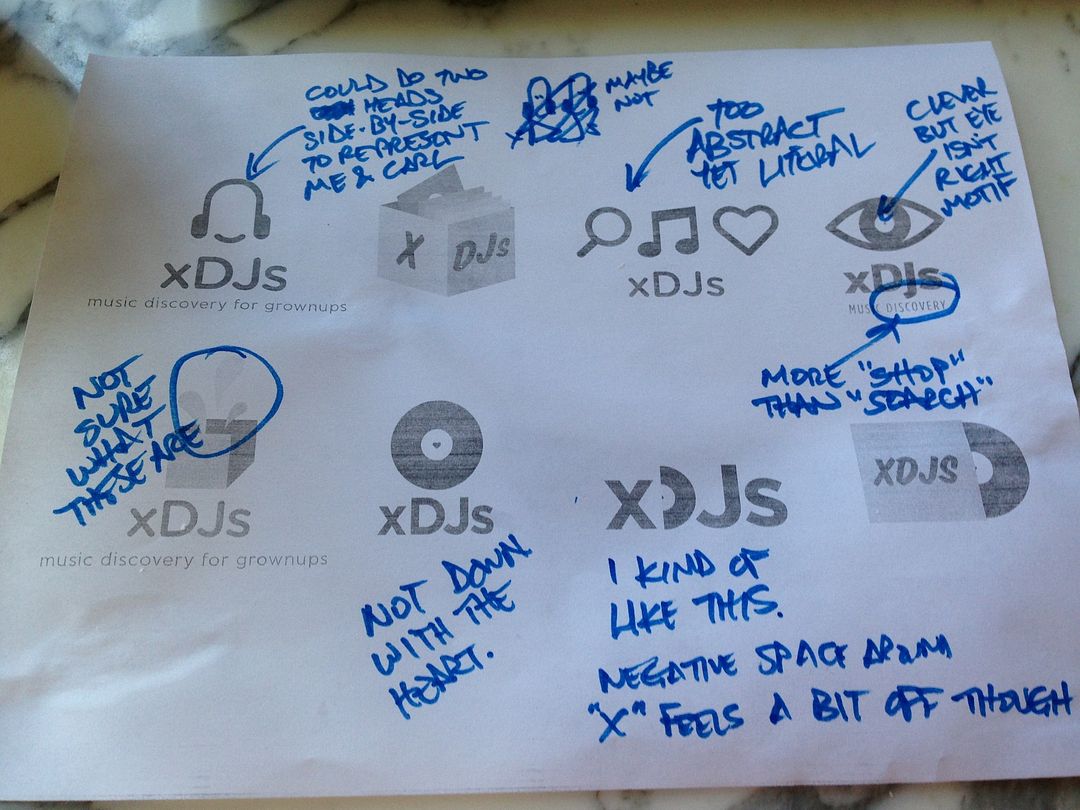 COULD DO TWO
HEADS
SIDE-BY-SIDE
TO REPRESENT
ME & CARL
MAYBE
NOT
TOO
ABSTRACT
YET LITERAL
CLEVER
BUT EYE
ISN'T
RIGHT
MOTIF
xDJs
music discovery for grownups
X DJs
xDJs
xDJs
MUSIC DISCOVERY
MORE "SHOP"
THAN "SEARCH"
NOT
SURE
WHAT
THESE ARE
xDJs
music discovery for grownups
xDJs
xDJs
XDJS
NOT DOWN
WITH THE
HEART.
I KIND OF
LIKE THIS.
NEGATIVE SPACE AROUND
"X" FEELS A BIT OFF THOUGH